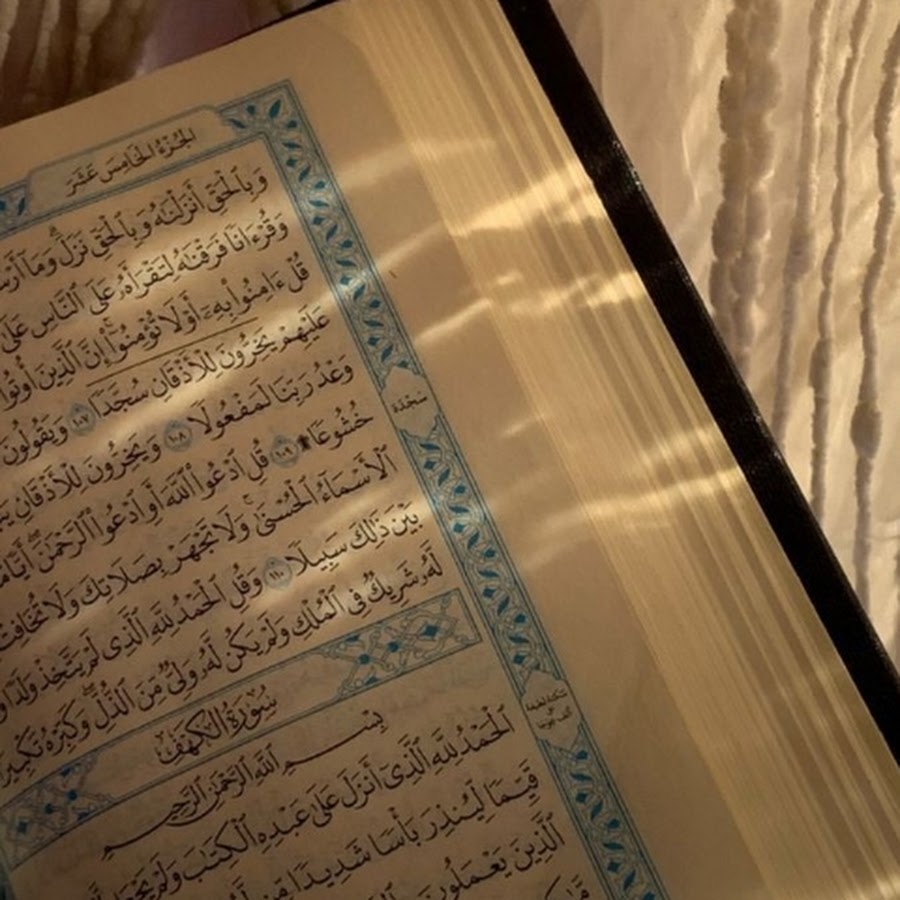 الجُزْءُ الخَامِسَ عَشَرَ
وَبِٱلْحَقِّ أَنزَلْنَٰهُ وَبِٱلْحَقِّ نَزَلَ ۗ وَمَآ
وَقُرْءَانًا فَرَقْنَٰهُ لِتَقْرَأَهُۥ عَلَى ٱلنَّاسِ عَلَىٰ
قُلْ ءَامِنُوا۟ بِهِۦٓ أَوْ لَا تُؤْمِنُوٓا۟ ۚ إِنَّ ٱلَّذِينَ أُوتُوا۟
عَلَيْهِمْ يَخِرُّونَ لِلْأَذْقَانِ سُجَّدًا ١٠٧ وَيَقُولُونَ
وَعْدُ رَبِّنَا لَمَفْعُولًا ١٠٨ وَيَخِرُّونَ لِلْأَذْقَانِ
سَجْدَة
خُشُوعًا ۩ ١٠٩ قُلِ ٱدْعُوا۟ ٱللَّهَ أَوِ ٱدْعُوا۟ ٱلرَّحْمَٰنَ ۖ أَيًّا
ٱلْأَسْمَآءُ ٱلْحُسْنَىٰ ۚ وَلَا تَجْهَرْ بِصَلَاتِكَ وَلَا تُخَافِتْ
بَيْنَ ذَٰلِكَ سَبِيلًا ١١٠ وَقُلِ ٱلْحَمْدُ لِلَّهِ ٱلَّذِى لَمْ يَتَّخِذْ وَلَدًا
لَّهُۥ شَرِيكٌ فِى ٱلْمُلْكِ وَلَمْ يَكُن لَّهُۥ وَلِىٌّ مِّنَ ٱلذُّلِّ ۖ وَكَبِّرْهُ تَكْبِيرًۢا
سُورَةُ الكَهْفِ
بِسْمِ ٱللَّهِ ٱلرَّحْمَٰنِ ٱلرَّحِيمِ
ٱلْحَمْدُ لِلَّهِ ٱلَّذِىٓ أَنزَلَ عَلَىٰ عَبْدِهِ ٱلْكِتَٰبَ وَلَمْ يَجْعَل
قَيِّمًا لِّيُنذِرَ بَأْسًا شَدِيدًا مِّن
ٱلَّذِينَ يَعْمَلُونَ